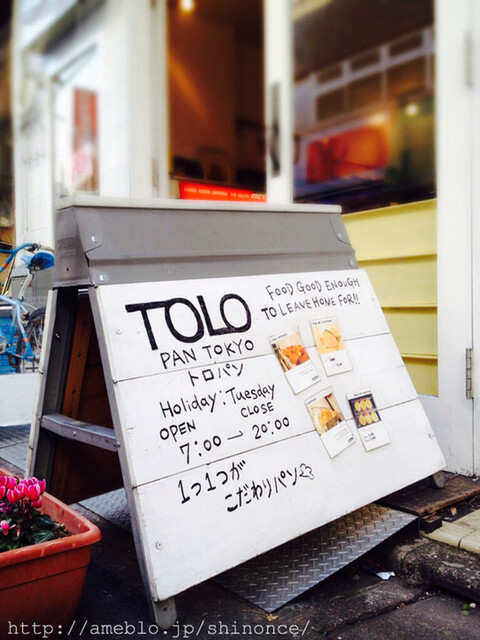 TOLO
PAN TOKYO
トロパン
FOOD GOOD ENOUGH
TO LEAVE HOME FOR!!
Holiday: Tuesday
OPEN CLOSE
7:00 → 20:00
1つ1つが
こだわりパン
http://ameblo.jp/shinonce/